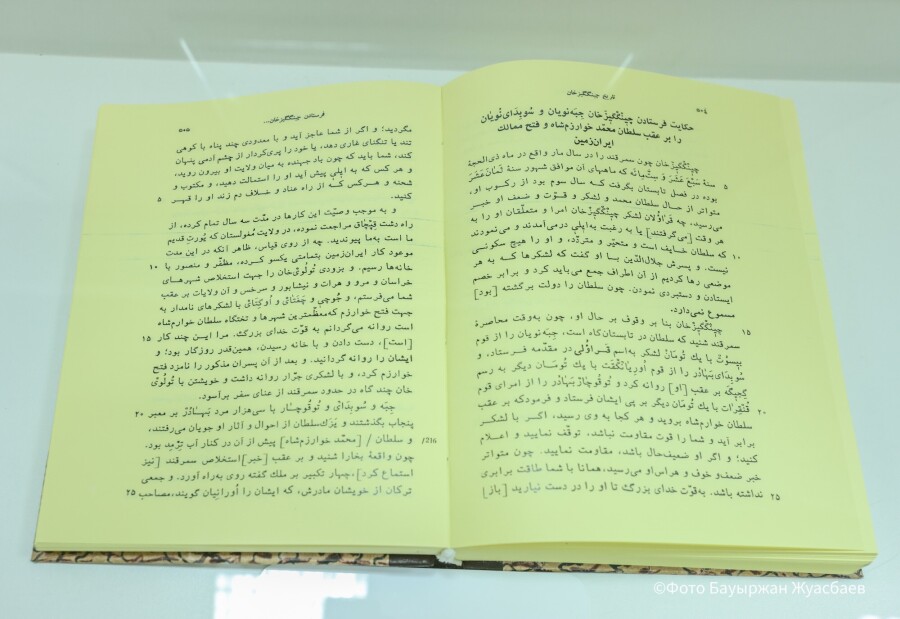 ۵۰۴
تاریخ چینگگیزخان
حکایت فرستادن چینگگیزخان جبه‌نویان و سوبدای‌نویان
را بر عقب سلطان محمّد خوارزم‌شاه و فتح ممالک
ایران‌زمین
چینگگیزخان چون سمرقند را در سال مار واقع در ماه ذی‌الحجة
سنهٔ سَبْعَ عَشَرَ وَ سِتَّمِائَه که ماههای آن موافق شهور سنهٔ ثَمانَ عَشَرَ ۵
بوده در فصل تابستان بگرفت کــه سال سوم بود از رکــوب او،
متواتر از حال سلطان محمد و لشکر و قــوّت و ضعف او خبــر
می‌رسید، چه قراؤلان لشکر چینگگیزخان امرا و متعلّقان او را به
هر وقت [می‌گرفتند] یا به رغبت به‌ایلی درمی‌آمدند و می‌نمودند
که سلطان خایف است و متحیّر و متردّد، و او را هیچ سکونــی ۱۰
نیست. و پسرش جلال‌الدّین بــا او گفت که لشکرها کــه به هر
موضعی رها کردیم از آن اطراف جمع می‌باید کرد و برابر خصم
ایستادن و دستبردی نمودن. چون سلطان را دولت برگشته [بود]
مسموع نمی‌دارد.
چینگگیزخان بنا بر وقوف بر حال او، چون به‌وقت محاصرهٔ ۱۵
سمرقند شنید که سلطان در تابستان‌گاه است، جبه‌نویان را از قوم
بیسوت با یك تومان لشکر به‌اسم قــراؤلی در مقدّمه فــرستاد، و
سوبدای‌بهادر را از قوم با یك تومان دیگر به رسم
بر عقب [او] روانه کرد و توقوچار‌بهادر را از امرای قوم
قنقرات با یك تومان دیگر بر پی ایشان فرستاد و فرمود‌که بر عقب ۲۰
سلطان خوارزم‌شاه بروید و هر کجا به وی رسید، اگــر با لشکــر
برابر آید و شما را قوت مقاومت نباشد، توقّف نمایید و اعــلام
کنید؛ و اگر او ضعیف‌حال باشد، مقاومت نمایید. چون متواتر
خبر ضعف‌و خوف و هراس‌او می‌رسید، همانا با شما طاقت برابری
نداشته باشد. به‌قوّت خدای بزرگ تا او را در دست نیارید [باز] ۲۵
فرستادن چینگگیزخان...
۵۰۵
مگردید؛ و اگر از شما عاجز آید و با معدودی چند پناه با کوهی
تند یا تنگنای غاری دهد، یا خود را پری‌کردار از چشم آدمی پنهان
کند، شما باید که چون باد جهنده به میان ولایت او بیرون روید،
و هر کس که به ایلی پیش آید او را استمالت دهید، و مکتوب و
شحنه و هــرکس کــه از راه عناد و خــلاف دم زند او را قهــر ۵
کنید.
و به موجب وصیّت این کارها در مدّت سه سال تمام کرده، از
راه دشت قپچاق مراجعت نموده، در ولایت مغولستان که یورت قدیم
ما است به‌ما پیوندید. چه از روی قیاس، ظاهر آنکه در این مدت
موعود کار ایران‌زمین بتمامتی یکسو کــرده، مظفّر و منصور با ۱۰
خانه‌ها رسیم. و بزودی تولوئی‌خان را جهت استخلاص شهرهــای
خراسان و مرو و هرات و نیشابور و سرخس و آن ولایات بر عقب
شما می‌فرستم، و جوچی و جغتای و اوکتای با لشکرهای نامدار به
جهت فتح خوارزم که‌معظم‌ترین شهرها و تختگاه سلطان خوارم‌شاه
است روانه می‌گردانم به قوّت خدای بزرگ. مرا این چند کار ۱۵
[است]، دست دادن و با خانه رسیدن، همین‌قدر روزگار بود؛ و
ایشان را روانه گردانید. و بعد از آن پسران مذکور را نامزد فتح
خوارزم کرد، و با لشکری جرّار روانه داشت و خویشتن با تولوئی
خان چند گاه در حدود سمرقند از عنای سفر برآسود.
جبه و سوبدای و توقوچــار با سی‌هزار مرد بهــادر بر معبر ۲۰
پنجاب بگذشتند و یزک‌سلطان از احوال و آثار او جویان می‌رفتند،
و سلطان / [محمّد خوارزم‌شاه] پیش از آن در کنار آب ترمد بود. 216/
چون واقعهٔ بخارا شنید و بر عقب [خبر] استخلاص سمرقند [نیز
استماع کرد]، چهار تکبیر بر ملك گفته روی به‌راه آورد. و جمعی
ترکان از خویشان مادرش، که ایشان را اورانیان گویند، مصاحب ۲۵
©Фото Бауыржан Жуасбаев